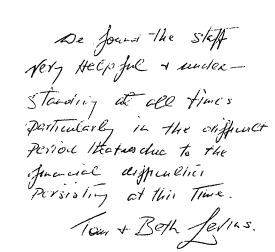 We found the staff
very Helpful + under-
standing at all times
particularly in the difficult
Period due to the
financial difficulties
Persisting at this Time.
Tom + Beth